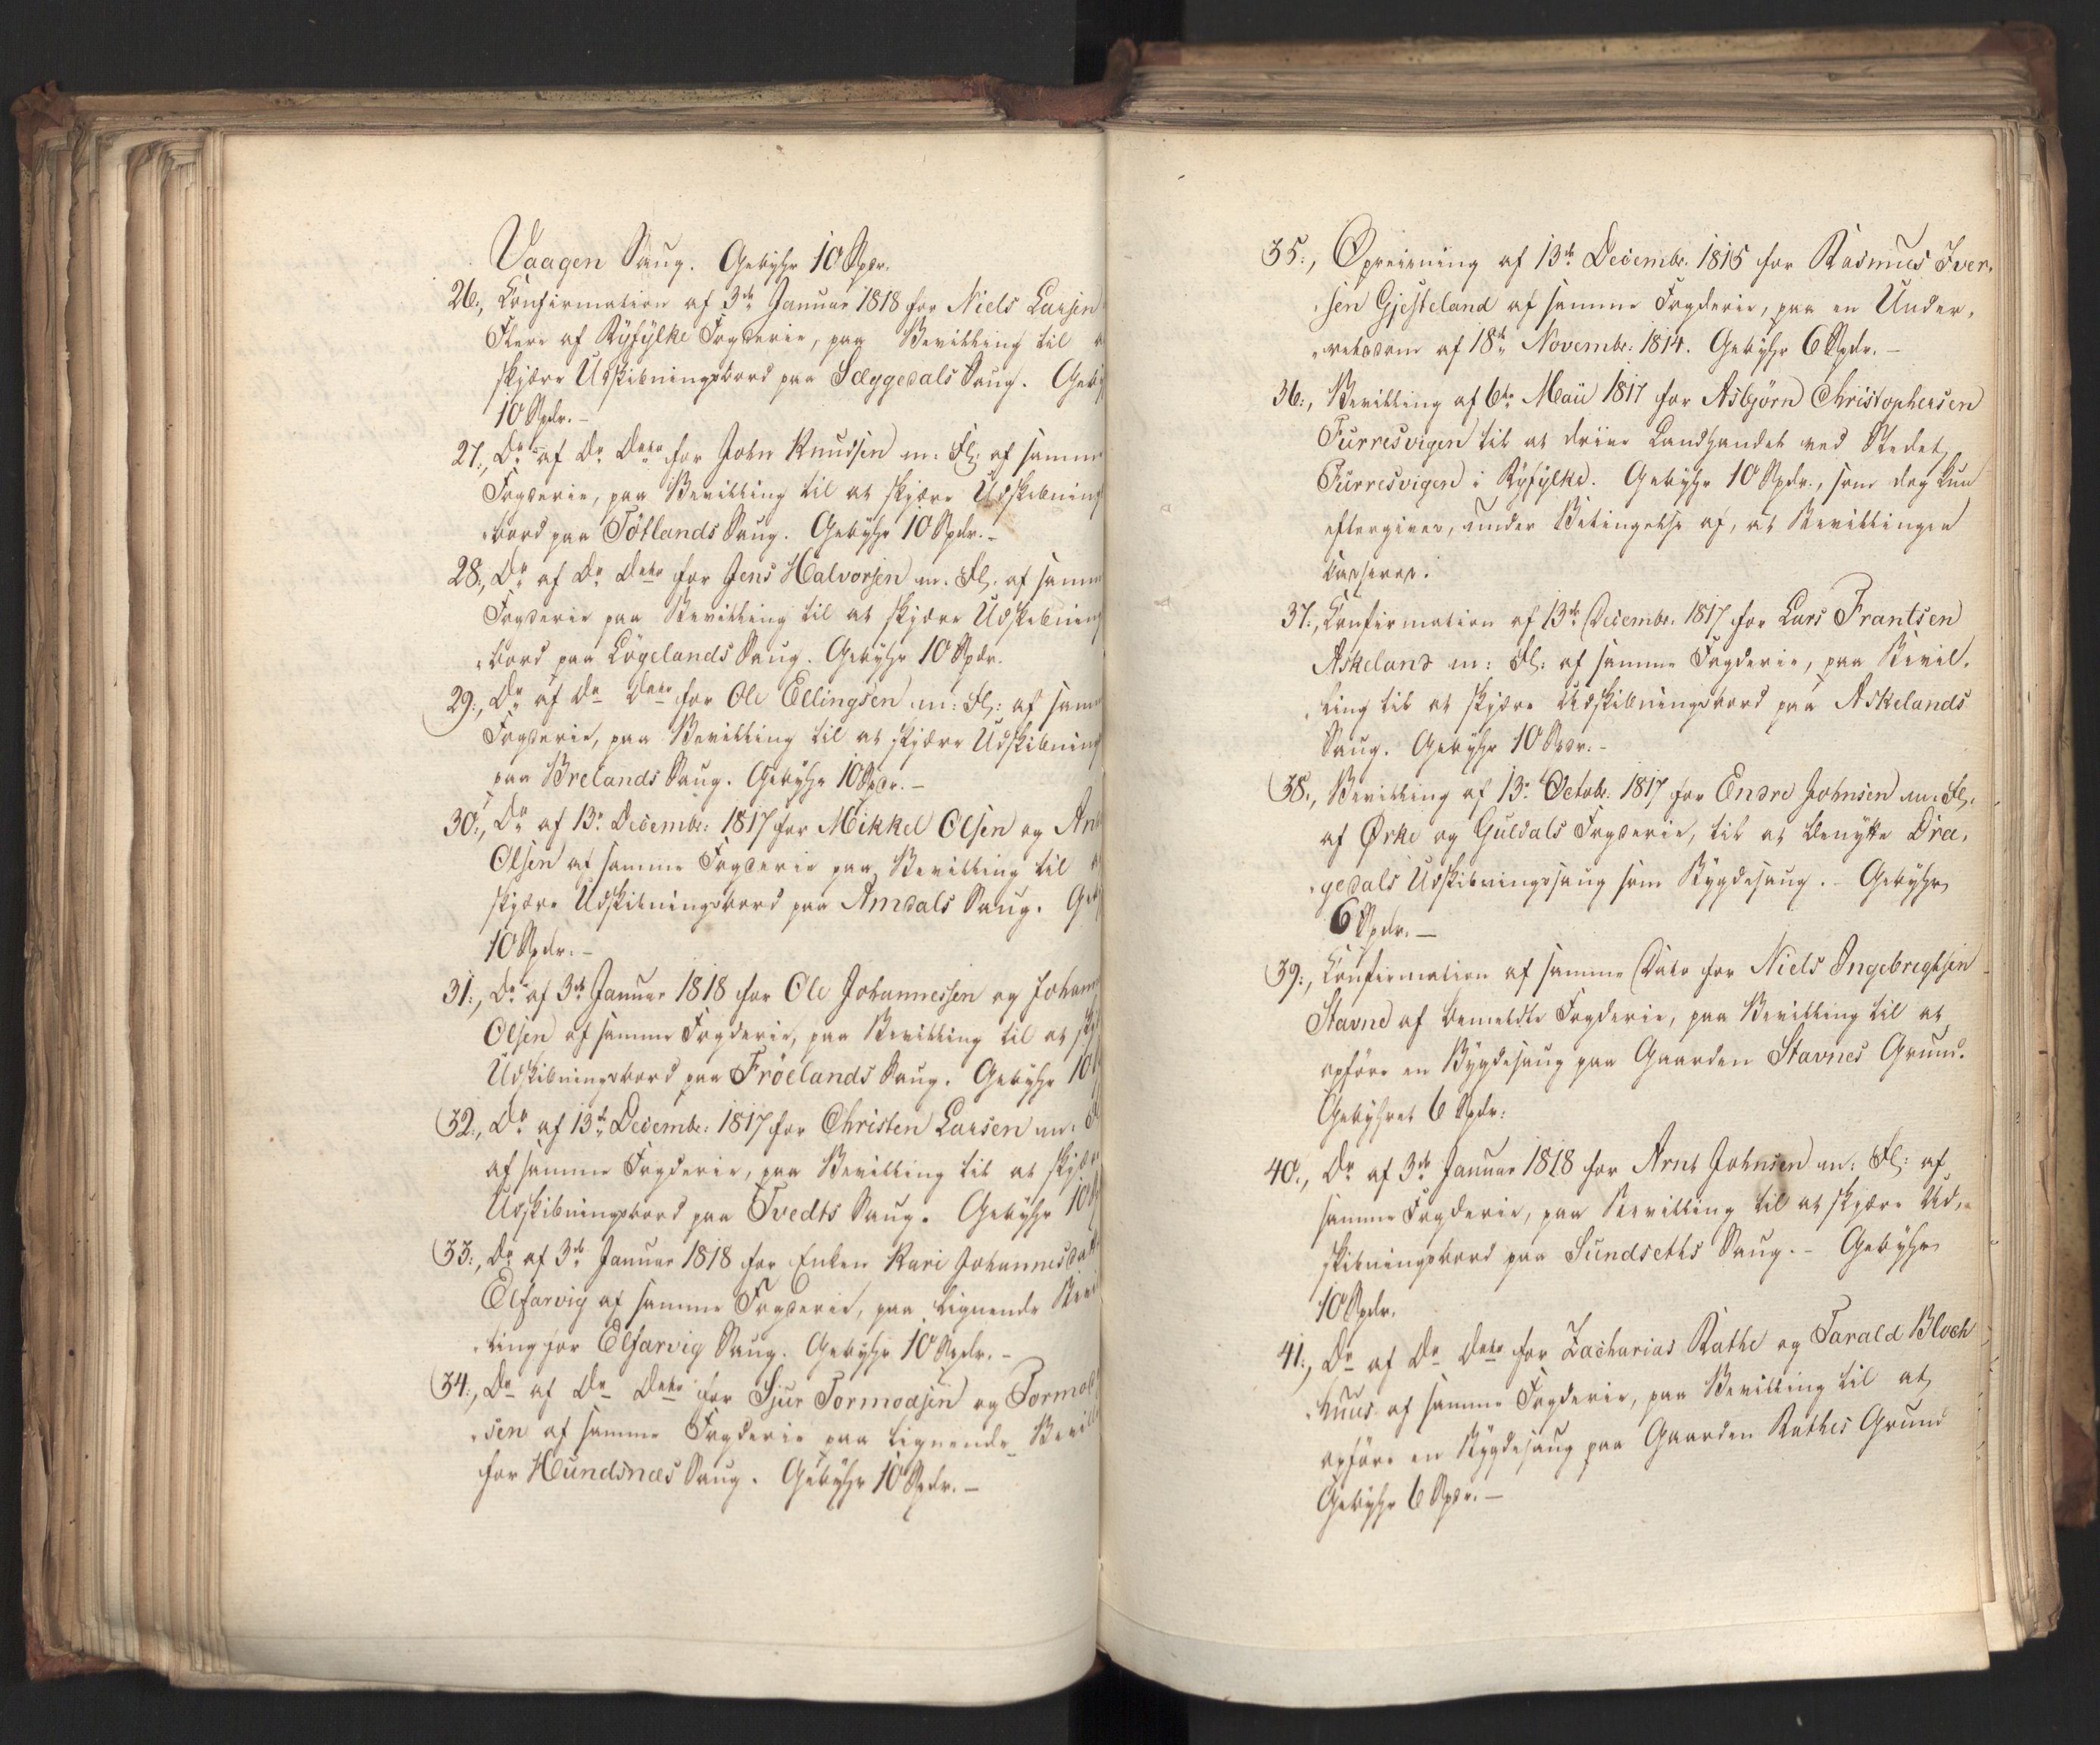 Vaagen Saug. Gebyhr 10 Spdr.
26., Confirmation af 3de Januar 1818 for Niels Larsen
Flere af Ryfylke Fogderie, paa Bevilling til a
skjære Udskibningsbord paa Sæggedals Saug. Geby
10 Spdr. -
27., Do af Do Dato for John Knudsen m: Fl: af samme
Fogderie, paa Bevilling til at skjære Udskibning
bord paa Tötlands Saug. Gebyhr 10 Spdr. -
28., Do af Do Dato for Jens Halvorsen m. Fl. af samm
Fogderie paa Bevilling til at skjære Udskibning
bord paa Lögelands Saug. Gebyhr 10 Spdr.
29., Do af Do Dato for Ole Ellingsen m: Fl: af sam
Fogderie, paa Bevilling til at skjære Udskibning
paa Brelands Saug. Gebyhr 10 Spdr. -
30., Do af 13. Decembr: 1817 for Mikkel Olsen og An
Olsen af samme Fogderie paa Bevilling til a
skjære Udskibningsbord paa Amdals Saug. Geb
10 Spdr. -
31., Do af 3de Januar 1818 for Ole Johannessen og Johann
Olsen af samme Fogderie, paa Bevilling til at skj
Udskibningsbord paa Fröelands Saug. Gebyhr 10
32., Do af 13de Decembr: 1817 for Christen Larsen m:
af samme Fogderie, paa Bevilling til at skjær
Udskibningsbord paa Tvedts Saug. Gebyhr 10
33., Do af 3de Januar 1818 for Enken Kari Johannesdatt
Elfarvig af samme Fogderie, paa lignende Bevi
ling for Elfarvig Saug. Gebyhr 10 Spdr. -
34., Do af Do Dato for Sjur Tormodsen og Tormod
sen af samme Fogderie paa lignende Bevill
for Hundsnæs Saug. Gebyhr 10 Spdr. -
35., Opreisning af 13de Decembr. 1815 for Rasmus Iver,
sen Gjesteland af samme Fogderie, paa en Under,
retsdom af 18de Novembr: 1814. Gebyhr 6 Spdr. -
36., Bevilling af 6te Maii 1817 for Asbjörn Christophersen
Turresvigen til at drive Landhandel ved Stedet
Turresvigen i Ryfylke. Gebyhr 10 Spdr., som dog kun
eftergives, under Betingelse af, at Bevillingen
casseres.
37., Confirmation af 13de Decembr: 1817 for Lars Frantsen
Askeland m: Fl: af samme Fogderie, paa Bevil,
ling til at skjære Udskibningsbord paa Askelands
Saug. Gebyhr 10 Spdr. -
38., Bevilling af 13. Octobr. 1817 for Endre Johnsen m: Fl.
af Ørke og Guldals Fogderie, til at benytte Dra,
gedals Udskibningssaug som Bygdesaug. - Gebyhr
6 Spdr. -
39., Confirmation af samme Dato for Niels Ingebregtsen
Stavne af bemeldte Fogderie, paa Bevilling til at
opföre en Bygdesaug paa Gaarden Stavnes Grund.
Gebyhret 6 Spdr:
40., Do af 3de Januar 1818 for Arnt Johnsen m: Fl: af
samme Fogderie, paa Bevilling til at skjære Ud,
skibningsbord paa Sundseths Saug. - Gebyhr
10 Spdr.
41., Do af Do Dato for Zacharias Rathe og Tarald Bloch
huus af samme Fogderie, paa Bevilling til at
opföre en Bygdesaug paa Gaarden Rathes Grund
Gebyhr 6 Spdr. -